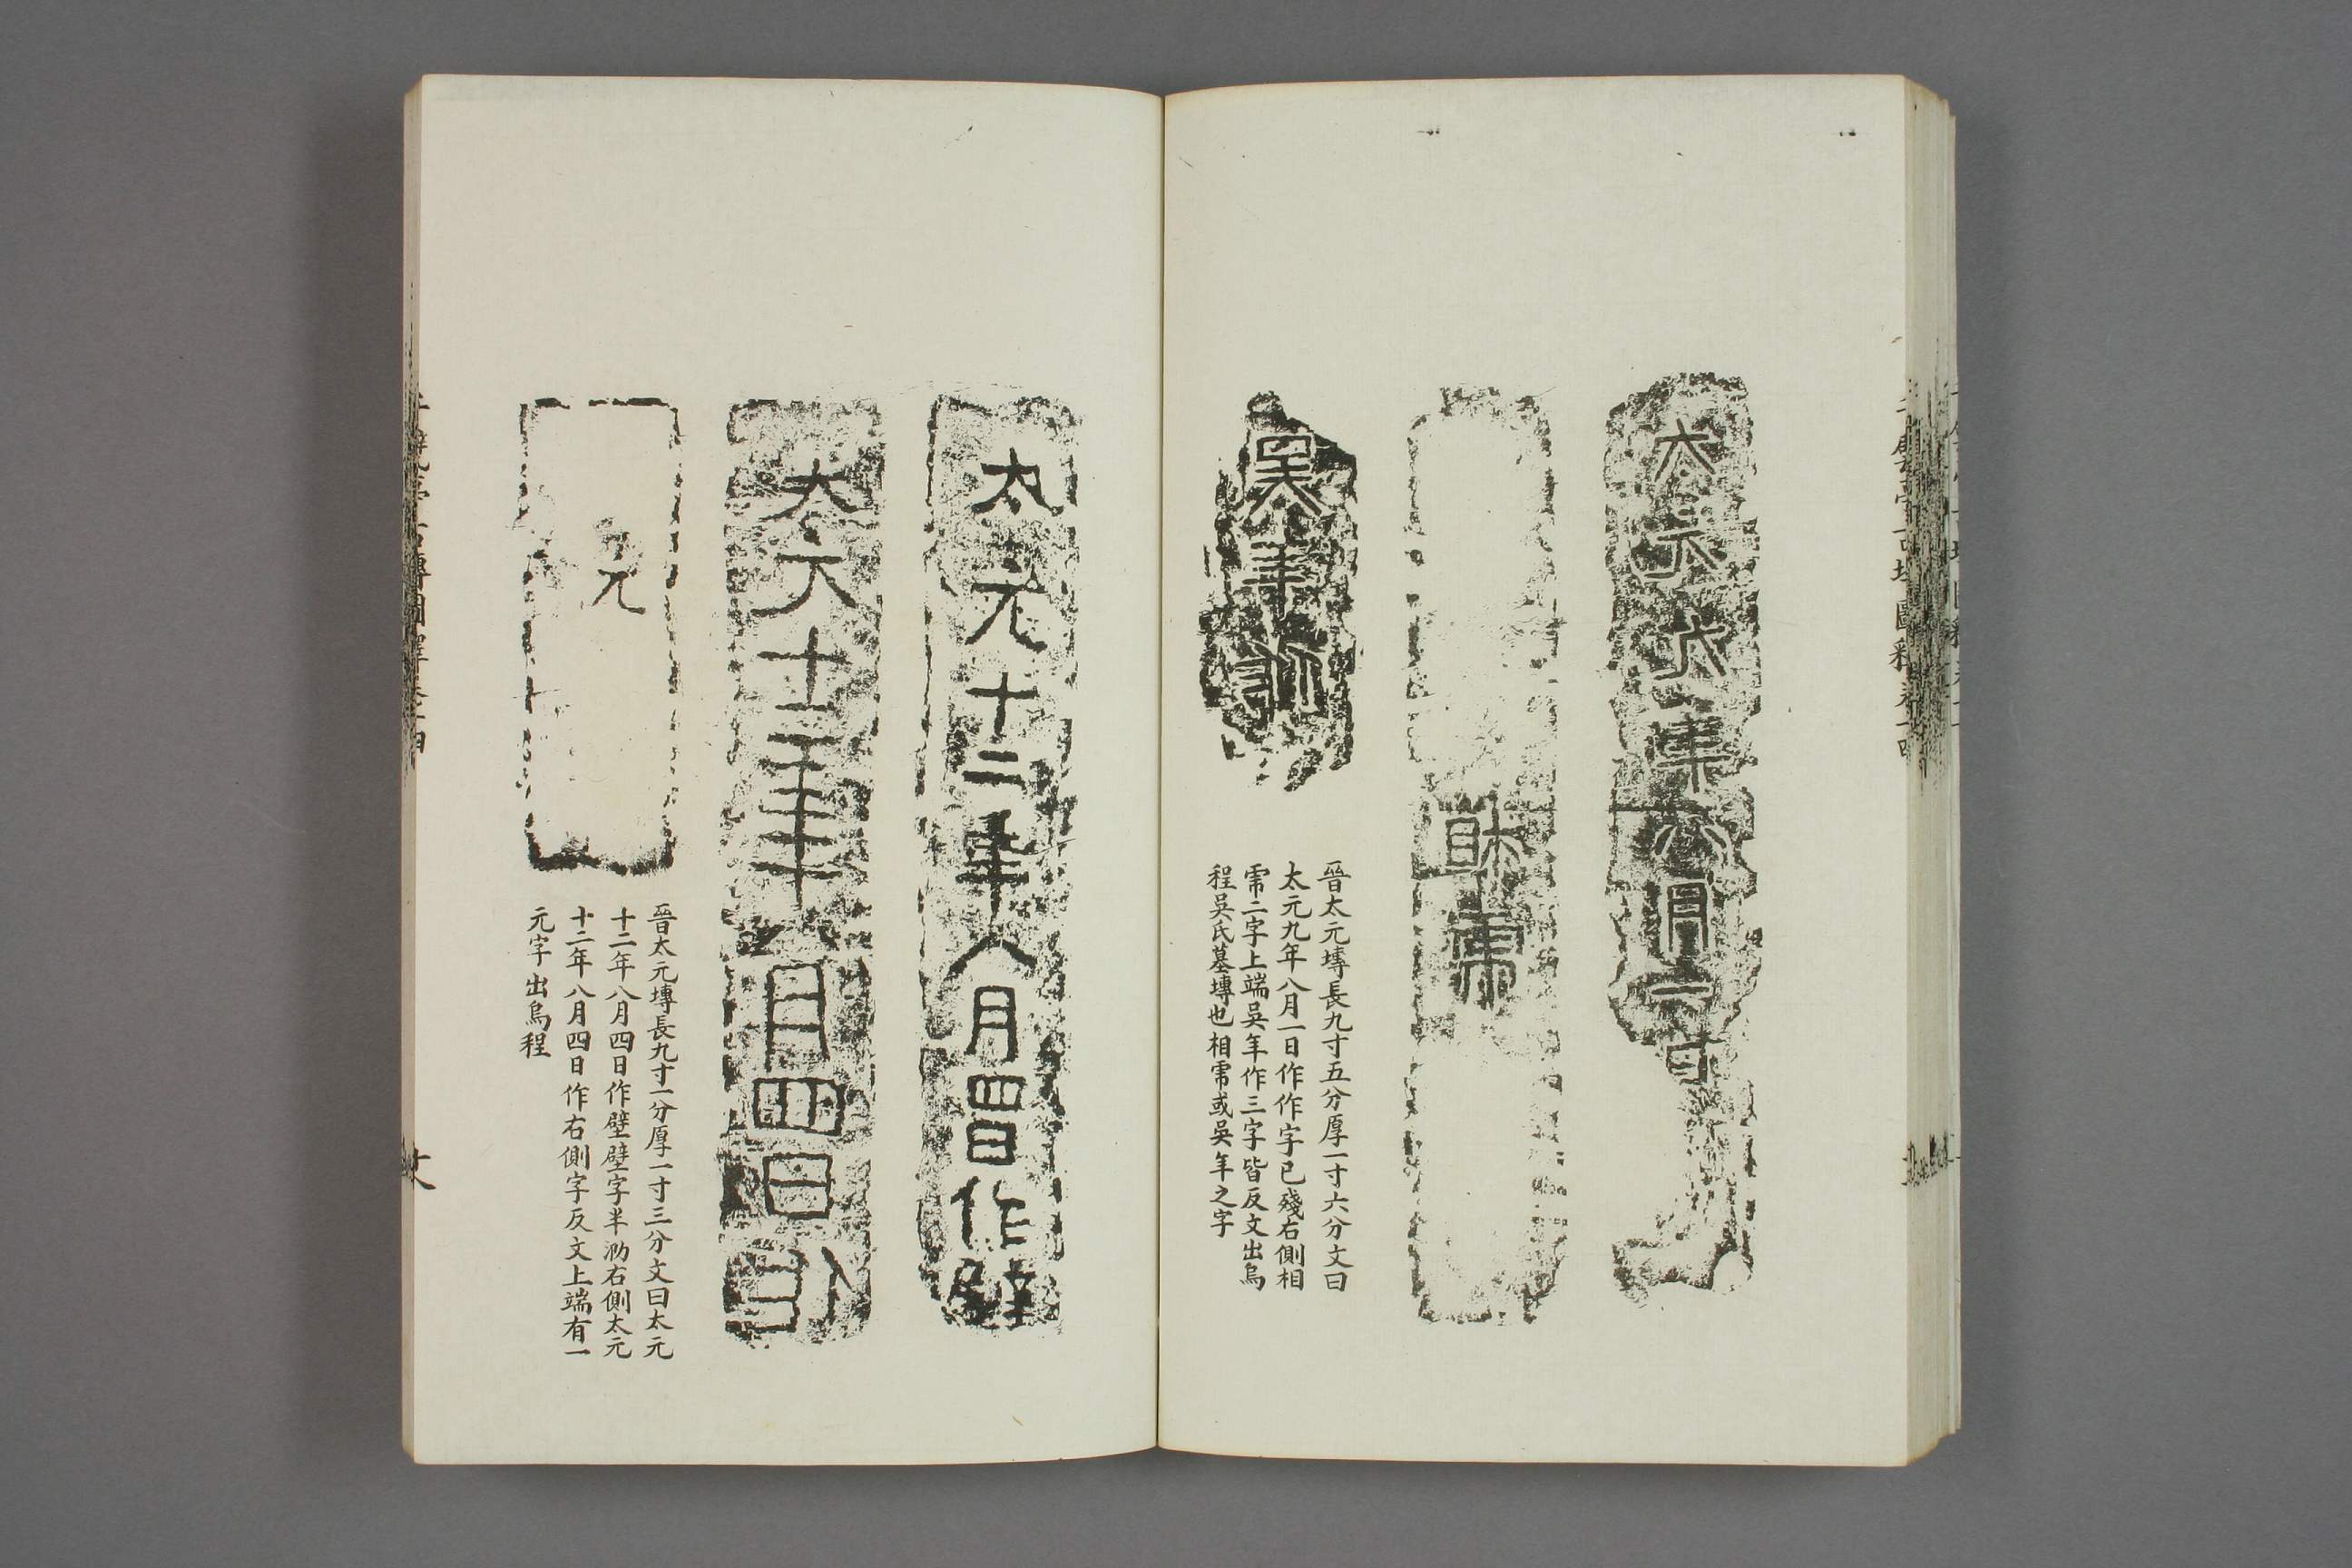 太元九年八月一日
相
霌
吳年作
晉太元塼長九寸五分厚一寸六分文曰
太元九年八月一日作作字已殘右側相
霌二字上端吳年作三字皆反文出烏
程吳氏墓塼也相霌或吳年之字
太元十二年八月四日作壁
太元十二年八月四日作
元
晉太元塼長九寸一分厚一寸三分文曰太元
十二年八月四日作壁壁字半泐右側太元
十二年八月四日作右側字反文上端有一
元字出烏程